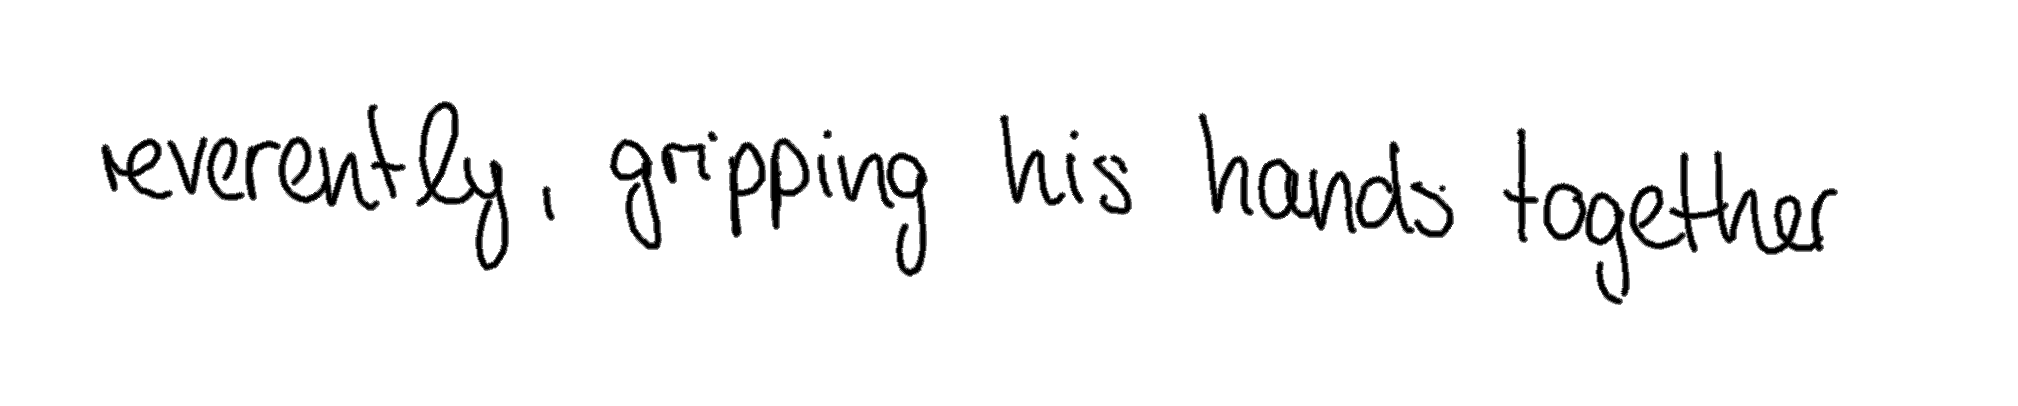 reverently, gripping his hands together